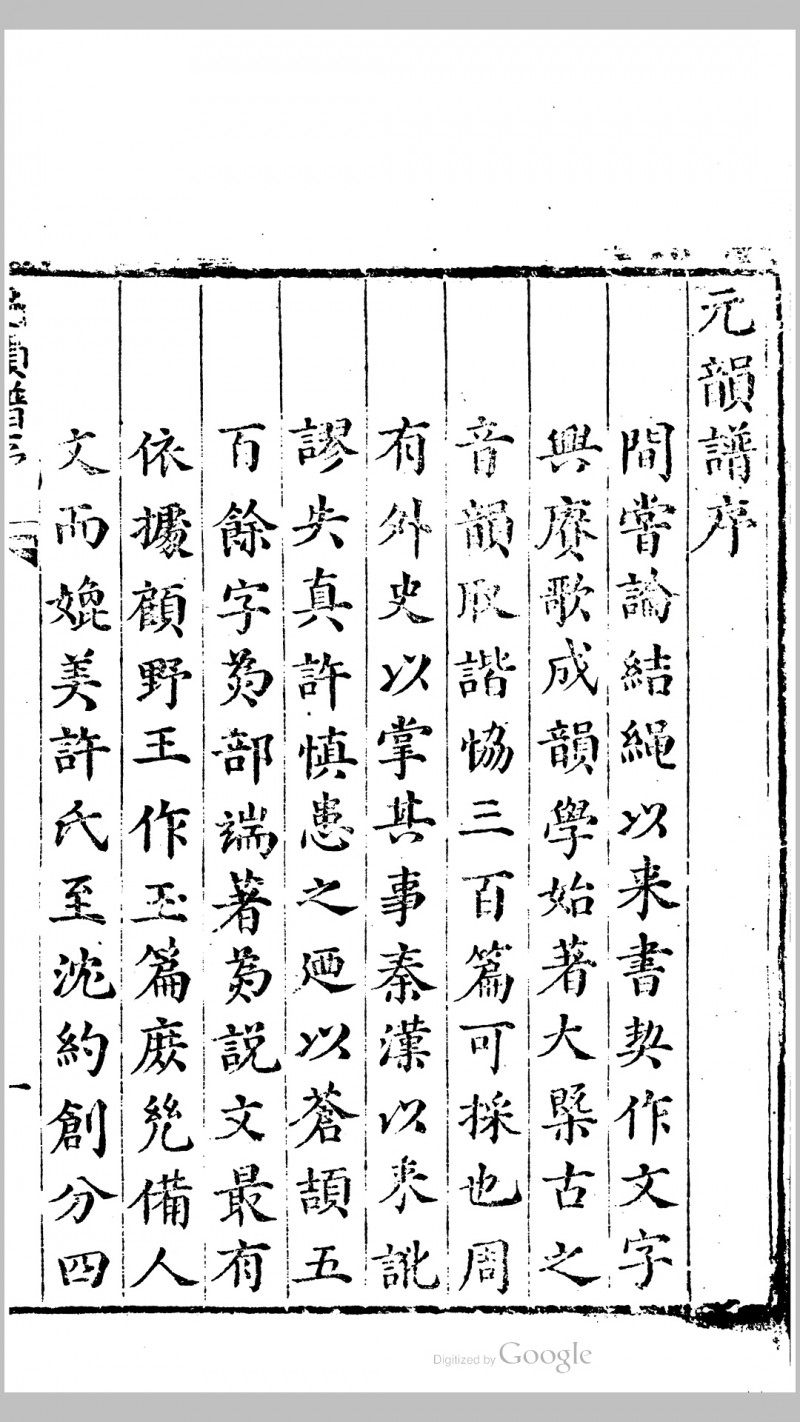 元韻譜序
間嘗論結繩以来書契作文字
興賡歌成韻學始著大槩古之
音韻取諧恊三百篇可採也周
有外史以掌其事秦漢以来訛
謬失真許慎患之廼以蒼頡五
百餘字為部端著為説文最有
依據顧野王作玉篇庶幾備人
文而媲美許氏至沈約創分四
一
Digitized by Google